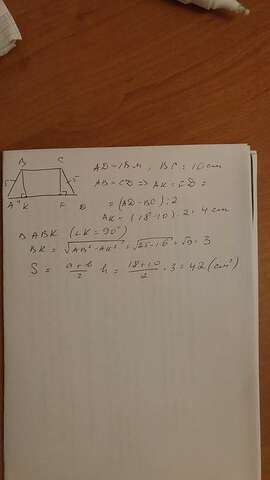 B C
5 5
A 4 K F D
AD = 18 м, BC = 10 cm
AB = CD => AK = FD =
= (AD - BC) : 2
AK = (18 - 10) : 2 = 4 cm
△ ABK (∠K = 90°)
BK = √AB² - AK² = √25 - 16 = √9 = 3
S = a + b / 2 h = 18 + 10 / 2 · 3 = 42 (cm²)